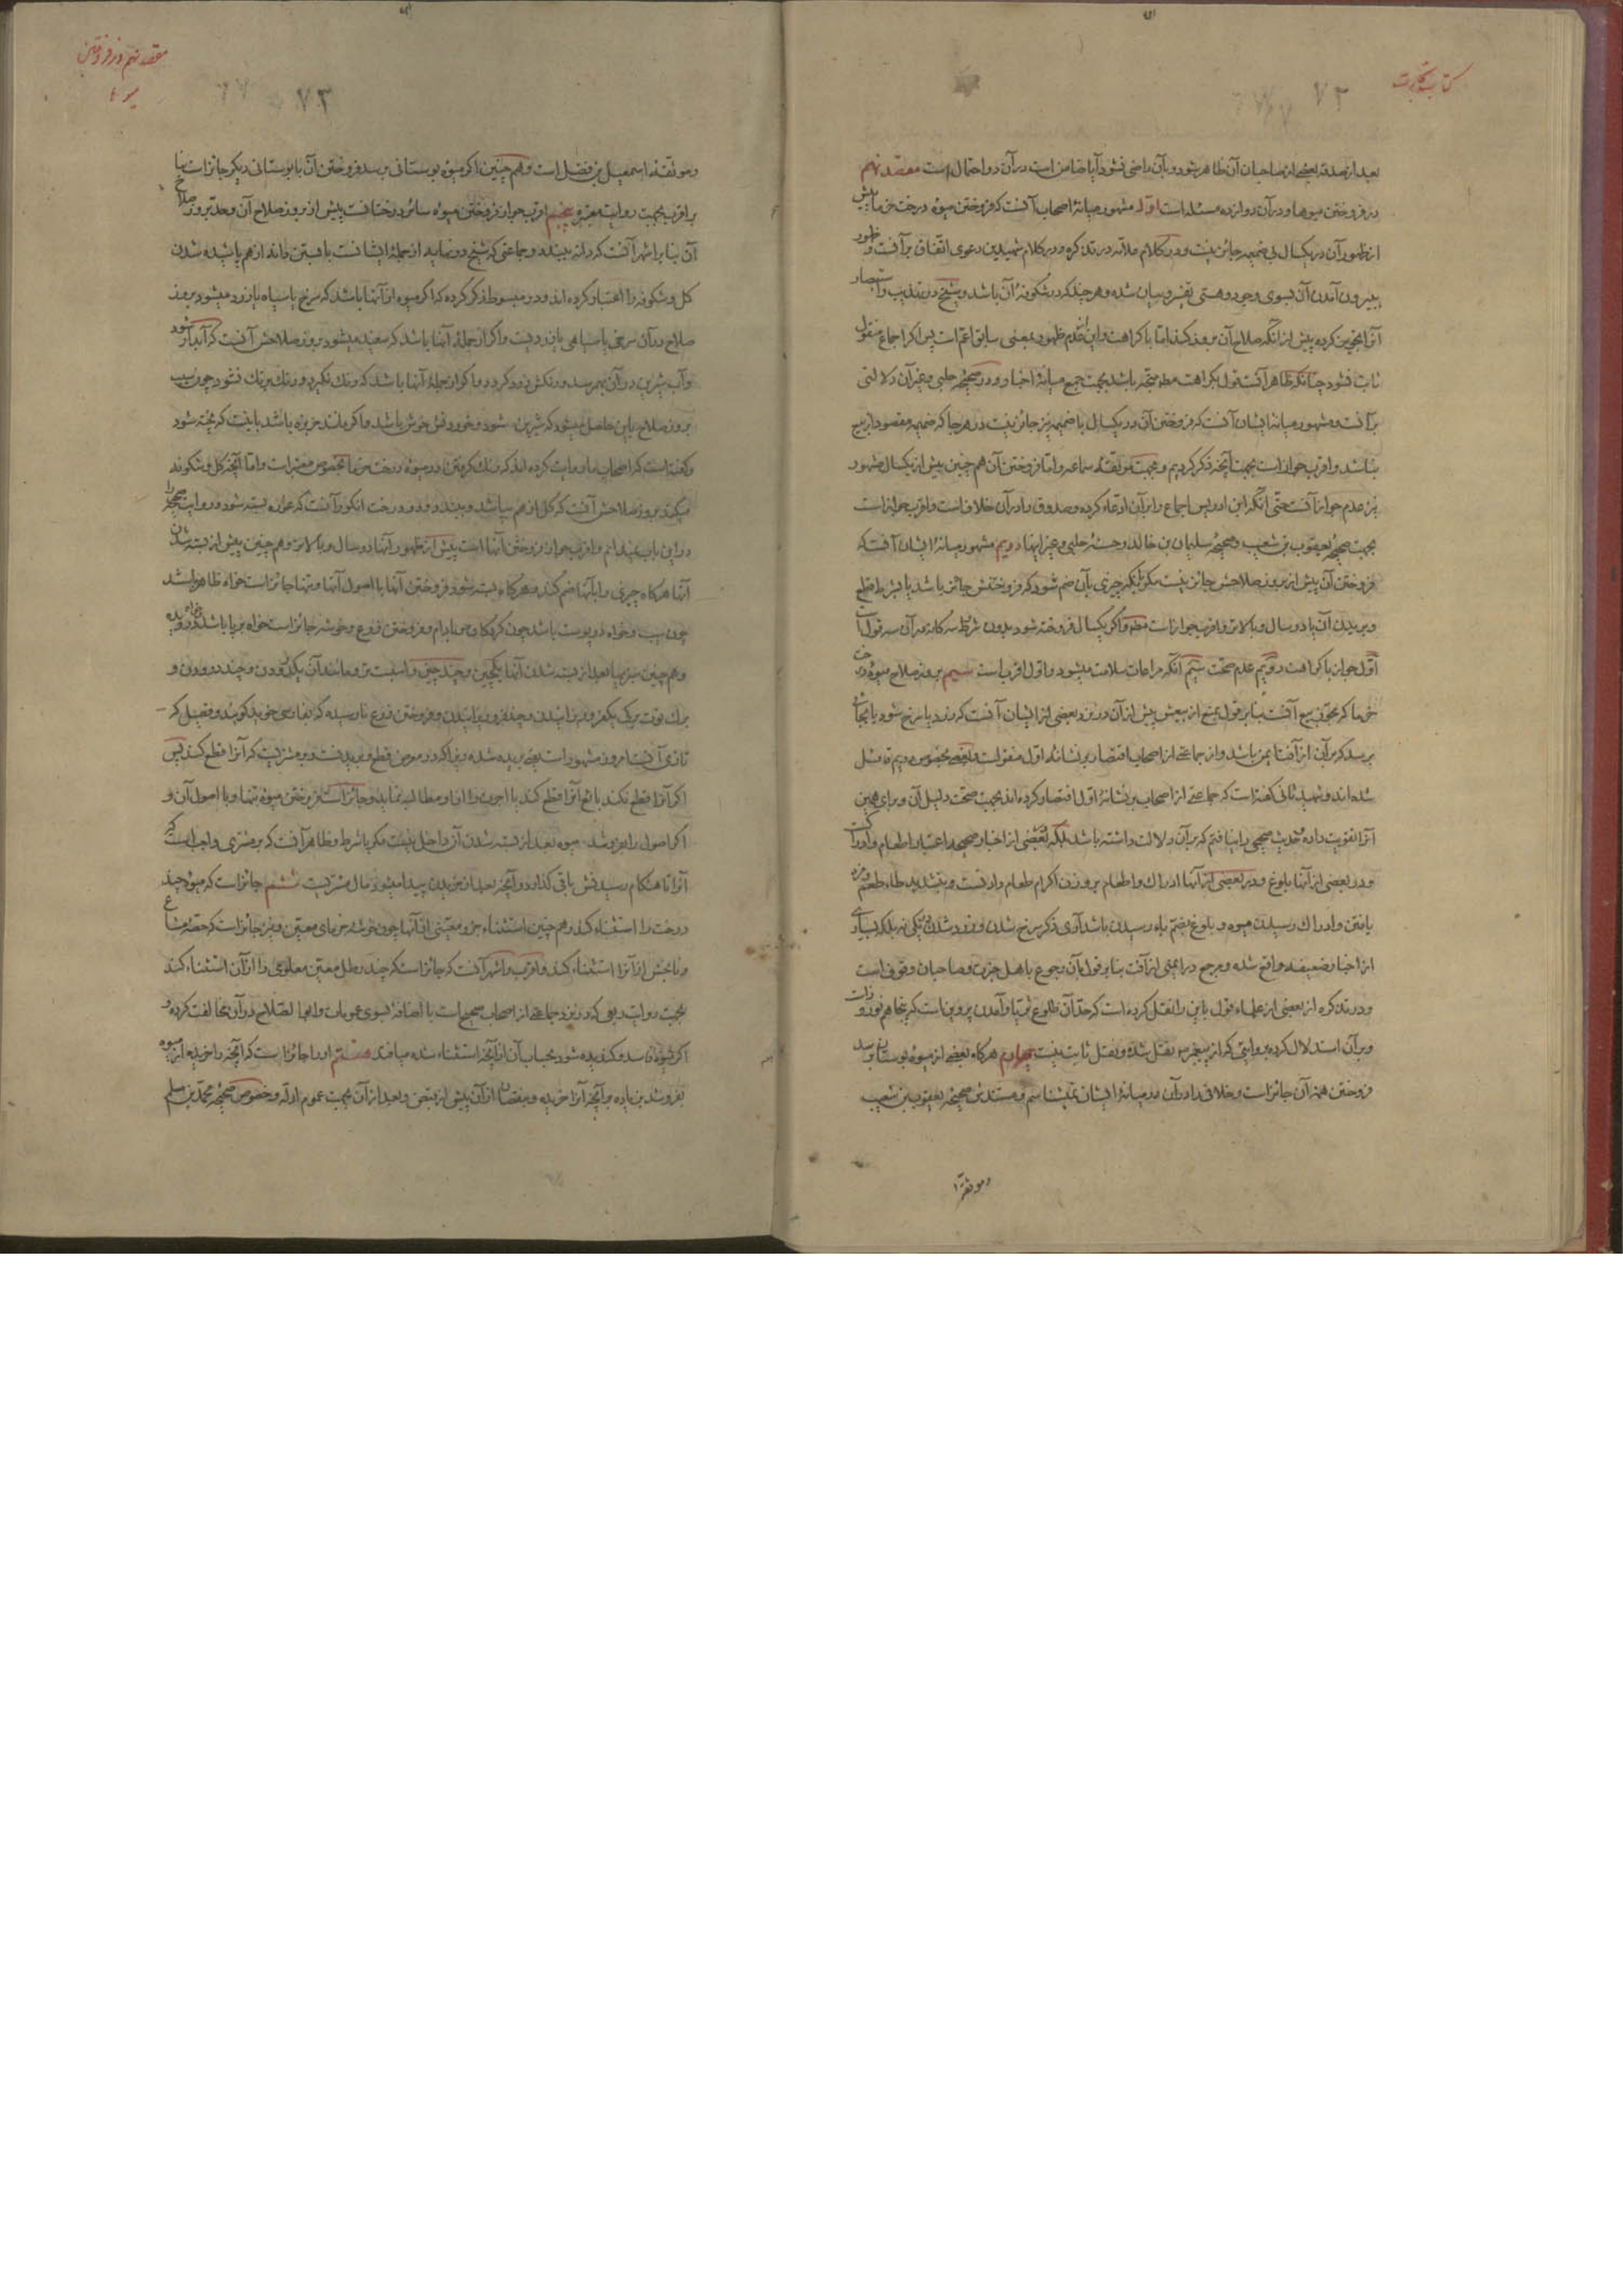 کتاب تجارت
۷۲
بعد از تصدق بعضی از صاحبان آن ظاهر شود و بآن راضی نشود آیا ضامن است در آن دو احتمال است مقصد نهم
در فروختن میوها و در آن دوازده مسئله است اول مشهور میانهٔ اصحاب آنست که فروختن میوه درخت خرما پیش
از ظهور آن در یکسال بی ضمیمه جائز نیست و در کلام علامه در تذکره و در کلام شهیدین دعوی اتفاق بر آنست و ظهور
بیرون آمدن آن بسوی وجود و هستی تفسیر و بیان شده و هر چند که در شکوفهٔ آن باشد و شیخ در تهذیب و استبصار
آنرا تجویز کرده پیش از آنکه صلاح آن بروز کند اما با کراهت و این عدم ظهور بمعنی سابق اعم است پس اگر اجماع منقول
ثابت نشود چنانکه ظاهر آنست قول بکراهت مطه متجه باشد بجهت جمع میانهٔ اخبار و در صحیحهٔ حلبی و غیر آن دلالتی
بر آنست و مشهور میانه ایشان آنست که فروختن آن در یکسال با ضمیمه نیز جائز نیست در هر جا که ضمیمه مقصود از بیع
نباشد و اقرب جواز است بجهت آنچه ذکر کردیم و بجهت موثقه سماعه و اما فروختن آن هم چنین بیش از یکسال مشهور
نیز عدم جواز آنست حتی آنکه ابن ادریس اجماع را بر آن ادعاء کرده و صدوق را در آن خلافست و اقرب جواز است
بجهت صحیحهٔ یعقوب بن شعیب و صحیحهٔ سلیمان بن خالد و حسنهٔ حلبی و غیر اینها دویم مشهور میانهٔ ایشان آنست که
فروختن آن پیش از بروز صلاحش جائز نیست مگر آنکه چیزی بآن ضم شود که فروختنش جائز باشد یا بشرط قطع
و بریدن آن یا دو سال و بالاتر و اقرب جواز است مطه و اگر یکسال فروخته شود بدون شرط سه گانه در آن سه قولست
اول جواز با کراهت دویم عدم صحت سیم آنکه مراعات سلامت میشود و اول اقرب است سیم بروز صلاح میوه درخت
خرما که مجوز بیع آنست بنابر قول بمنع از بیعش پیش از آن در نزد بعضی از ایشان آنست که زرد یا سرخ شود یا بجائی
برسد که بر آن از آفتها ایمن باشد و از جماعتی از اصحاب اقتصار بر نشانهٔ اول منقولست و بعضی بخصوص دویم قائل
شده‌اند و شهید ثانی گفته است که جماعتی از اصحاب بر نشانهٔ اول اقتصار کرده اند بجهت صحت دلیل آن و برای همین
آنرا تقویت داده و حدیث صحیحی را نیافتم که بر آن دلالت داشته باشد بلکه بعضی از اخبار صحیحه را اعتبار اطعام و ادراکست
و در بعضی از آنها بلوغ و در بعضی از آنها ادراک و اطعام بر وزن اکرام طعام وارد است و بتشدید طاء طعم و مزه
یافتن و ادراک رسیدن میوه و بلوغ بضم باء رسیدن باشد آری ذکر سرخ شدن و زرد شدن یکی نیز بلکه بسیاری
از اخبار ضعیفه واقع شده و مرجع در ایمنی از آفت بنابر قول بآن رجوع باهل خبرت و صاحبان وقوف است
و در تذکره از بعضی از علماء قول باین را نقل کرده است که حد آن طلوع ثریا و آمدن پروین است که پنجاهم نوروز است
و بر آن استدلال کرده بروایتی که از پیغمبر ص نقل شده و نقل ثابت نیست چهارم هرگاه بعضی از میوهٔ بوستانی برسد
فروختن همهٔ آن جائز است و خلافی را در آن در میانهٔ ایشان نمیشناسم و مستندش صحیحهٔ یعقوب بن شعیب
و موثقه
مقصد نهم در فروختن
میوها
۷۳
و موثقه اسمعیل بن فضل است و هم چنین اگر میوه بوستانی برسد فروختن آن با بوستانی دیگر جائز است بنا
بر اقرب بجهت روایت معتبره پنجم اقرب جواز فروختن میوه سائر درختانست پیش از بروز صلاح آن و حد بروز صلاح
آن بنا بر اشهر آنست که دانه ببندد و جماعتی که شیخ در نهایه از جملهٔ ایشانست با بستن دانه از هم پاشیده شدن
گل و شکوفه را اعتبار کرده اند و در مبسوط ذکر کرده که اگر میوه از آنها باشد که سرخ یا سیاه یا زرد میشود بروز
صلاح در آن سرخی یا سیاهی یا زردیست و اگر از جملهٔ آنها باشد که سفید میشود بروز صلاحش آنست که آبدار شود
و آب شیرین در آن بهم رسد و رنگش زرد گردد و اگر از جملهٔ آنها باشد که رنگ نگیرد و رنگ برنگ نشود چون سیب
بروز صلاح باین حاصل میشود که شیرین شود و خوردنش خوش باشد و اگر مانند خربزه باشد باینست که پخته شود
و گفته است که اصحاب ما روایت کرده اند که رنگ گرفتن در میوهٔ درخت خرما بخصوص معتبر است و اما آنچه گل و شکوفه
میکند بروز صلاحش آنست که گل از هم بپاشد و ببندد و در درخت انگور آنست که غوره بسته شود و روایت صحیحی را
در این باب نمیدانم و اقرب جواز فروختن آنها است پیش از ظهور آنها دو سال و بالاتر و هم چنین پیش از بسته شدن
آنها هرگاه چیزی را بآنها ضم کند و هرگاه بسته شود فروختن آنها با اصول آنها و تنها جائز است خواه ظاهر باشد
چون سیب و خواه در پوست باشد چون گردکان و بادام و فروختن زرع و خوشه جائز است خواه بر پا باشد و خواه درویده
و هم چنین سبزیها بعد از بسته شدن آنها یکچین و چند چین و اسپست تر و مانند آن یکدرودن و چند درودن و
برگ توت یک یکمرتبه بر اییدن و چند مرتبه بر اییدن و فروختن زرع نارسیده که بفارسی خوید گویند و قصیل که
تازی آنست امروز مشهور است یعنی بریده شده و چرا که در معرض قطع و بریدنست و بر مشتریست که آنرا قطع کند پس
اگر آنرا قطع نکند بائع آنرا قطع کند یا اجرت را از او مطالبه نماید و جائز است فروختن میوه تنها و با اصول آن و
اگر اصول را بفروشد میوه بعد از بسته شدن آن داخل نیست مگر با شرط و ظاهر آنست که بر مشتری واجبست که
آنرا تا هنگام رسیدنش باقی گذارد و آنچه بعد از خریدن پیدا میشود مال مشتریست ششم جائز است که میوهٔ چند
درخت را استثناء کند و هم چنین استثناء جزو معینی از آنها چون خوشه خرمای معین و نیز جائز است که حصهٔ مشاع
و نابخش از آنرا استثناء کند و اقرب و اشهر آنست که جائز است که چند رطل معین معلومی را از آن استثناء کند
بجهت روایت ربعی که در نزد جماعتی از اصحاب صحیح است با اضافه بسوی عمومات و ابوالصلاح در آن مخالفت کرده و
اگر میوه فاسد و گندیده شود بحساب آن از آنچه استثناء شده میافتد هفتم او را جائز است که آنچه را خریده از میوه
بفروشد بزیاده بر آنچه آنرا خریده و بنقصان از آن پیش از قبض و بعد از آن بجهت عموم ادله و خصوص صحیحهٔ محمد بن مسلم